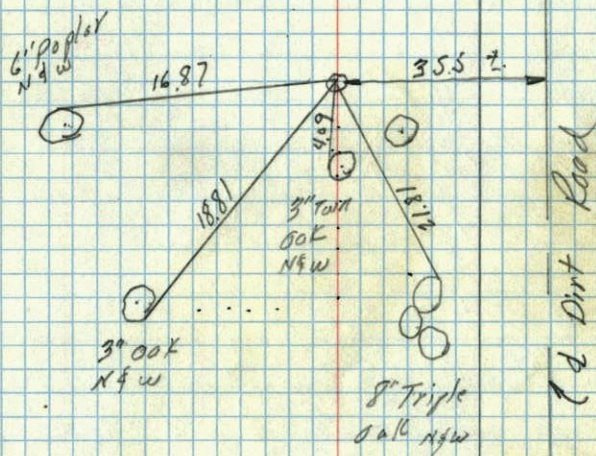 6" Poplar
N & W
16.87
35.5 ±
4.09
18.81
18.12
3" Twin
Oak
N & W
3" Oak
N & W
8" Triple
Oak N & W
Dirt Road